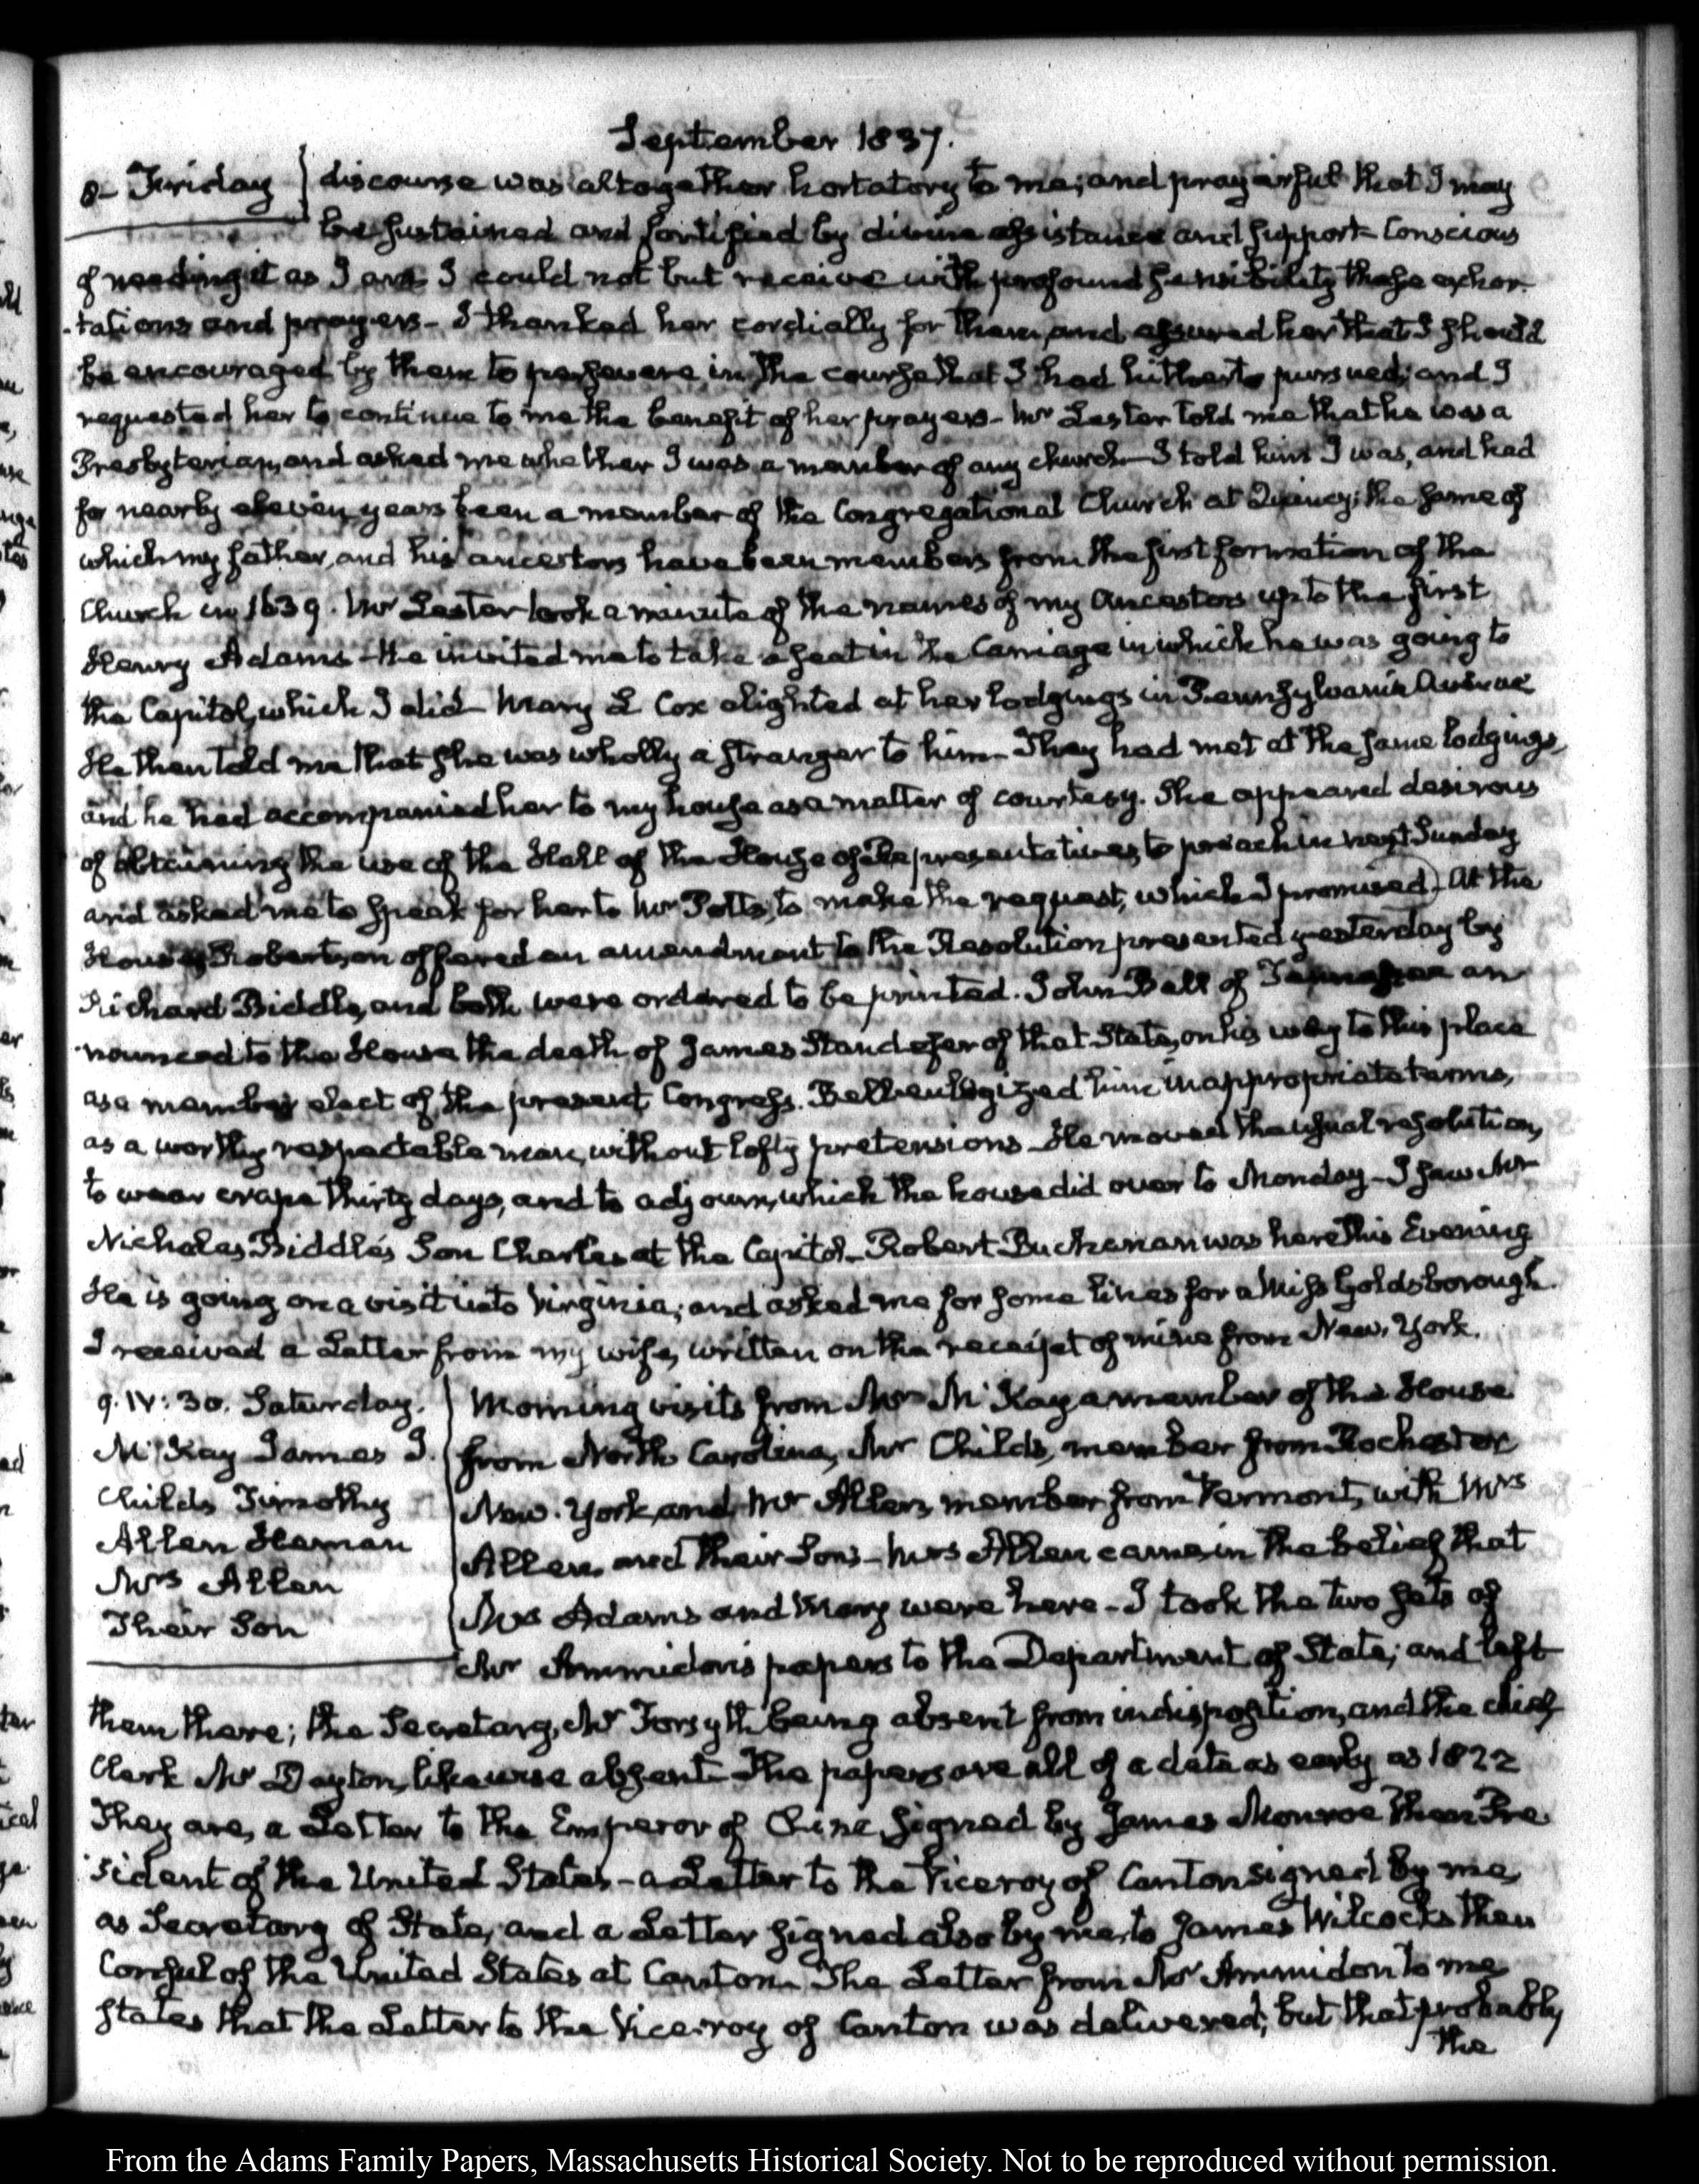 September 1837.
8- Friday discourse was altogether hortatory to me; and prayerful that I may
be sustained and fortified by divine assistance and support- Conscious
of needing it as I am I could not but receive with profound sensibility these exhor-
-tations and prayers- I thanked her cordially for them, and assured her that I should
be encouraged by them to persevere in the course that I had hitherto pursued; and I
requested her to continue to me the benefit of her prayers- Mr Lester told me that he was a
Presbyterian, and asked me whether I was a member of any church- I told him I was, and had
for nearly eleven years been a member of the Congregational Church at Quincy; the same of
which my father, and his ancestors have been members from the first formation of the
Church in 1639. Mr Lester took a minute of the names of my Ancestors up to the first
Henry Adams- He invited me to take a seat in the Carriage in which he was going to
the Capitol, which I did- Mary L Cox alighted at her lodgings in Pennsylvania Avenue
He then told me that she was wholly a stranger to him- They had met at the same lodgings,
and he had accompanied her to my house as a matter of courtesy. She appeared desirous
of obtaining the use of the Hall of the House of Representatives, to preach in next Sunday
and asked me to speak for her to Mr Potts, to make the request, which I promised- At the
House Robertson offered an amendment to the Resolution presented yesterday by
Richard Biddle, and both were ordered to be printed. John Bell of Tennessee an
nounced to the House the death of James Standefer of that State, on his way to this place
as a member elect of the present Congress. Bell eulogized him in appropriate terms,
as a worthy respectable man, without lofty pretensions- He moved the usual resolution,
to wear crape thirty days, and to adjourn, which the house did over to Monday- I saw Mr
Nicholas Biddle's Son Charles at the Capitol- Robert Buchanan was here this Evening
He is going on a visit into Virginia; and asked me for some lines for a Miss Goldsborough.
I received a Letter from my wife, written on the receipt of mine from New-York.
9. IV: 30. Saturday. Morning visits from Mr McKay a member of the House
McKay James I. from North Carolina, Mr Childs, member from Rochester
Childs Timothy New-York, and Mr Allen, member from Vermont, with Mrs
Allen Heman Allen, and their Son- Mrs Allen came in the belief that
Mrs Allen Mrs Adams and Mary were here- I took the two sets of
Their Son Mr Ammidon's papers to the Department of State; and left
them there; the Secretary, Mr Forsyth being absent from indisposition, and the chief
Clerk Mr Dayton, likewise absent- The papers are all of a date as early as 1822
They are, a Letter to the Emperor of China, signed by James Monroe then Pre-
sident of the United States- a Letter to the Viceroy of Canton signed by me,
as Secretary of State, and a Letter signed also by me, to James Wilcocks then
Consul of the United States at Canton- The Letter from Mr Ammidon to me
states that the Letter to the Vice-roy of Canton was delivered; but that probably
the
From the Adams Family Papers, Massachusetts Historical Society. Not to be reproduced without permission.